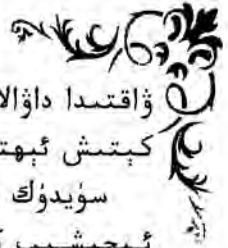 ۋاقتىدا داۋالا
كېتىش ئېھتـ
سۈيدۈك